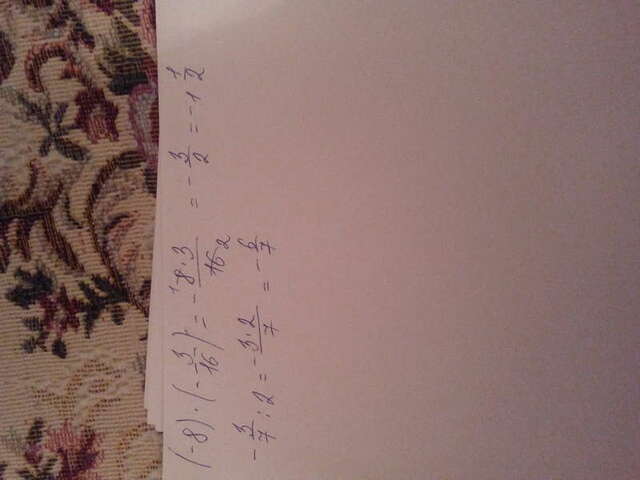 (-8) · (-3/16) = -¹8·3/16 2 = -3/2 = -1 1/2
-3/7 : 2 = -3·2/7 = -6/7